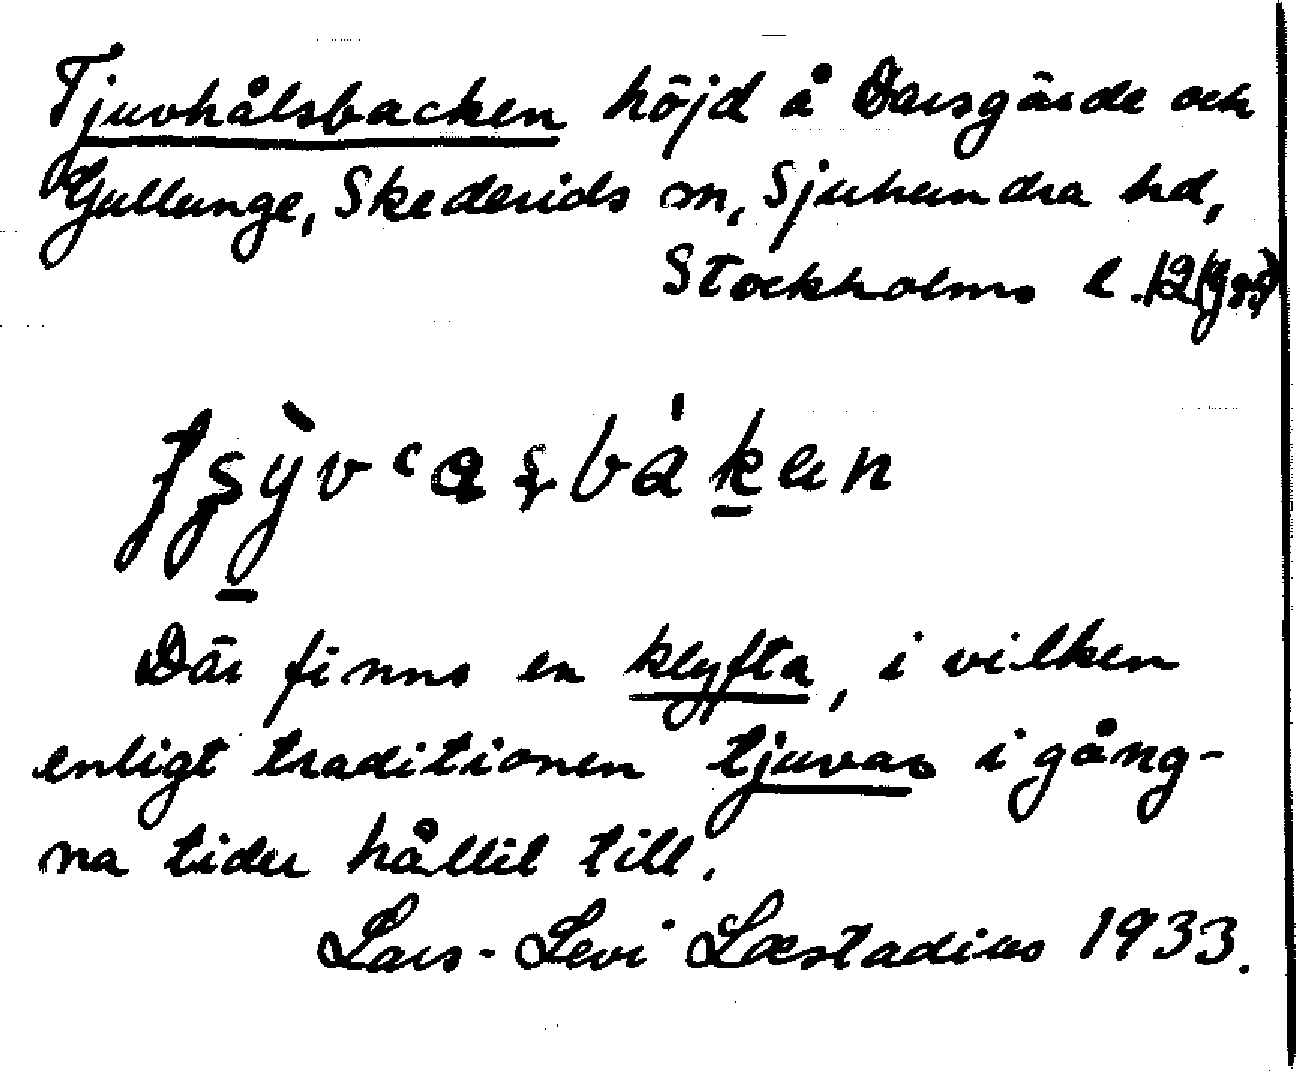 Tjuvhålsbacken höjd å Darsgärde och
Gullunge, Skederids sn, Sjuhundra hd,
Stockholms l.
Där finns en klyfta, i vilken
enligt traditionen tjuvar i gång-
na tider hållit till.
Lars-Levi Læstadius 1933.